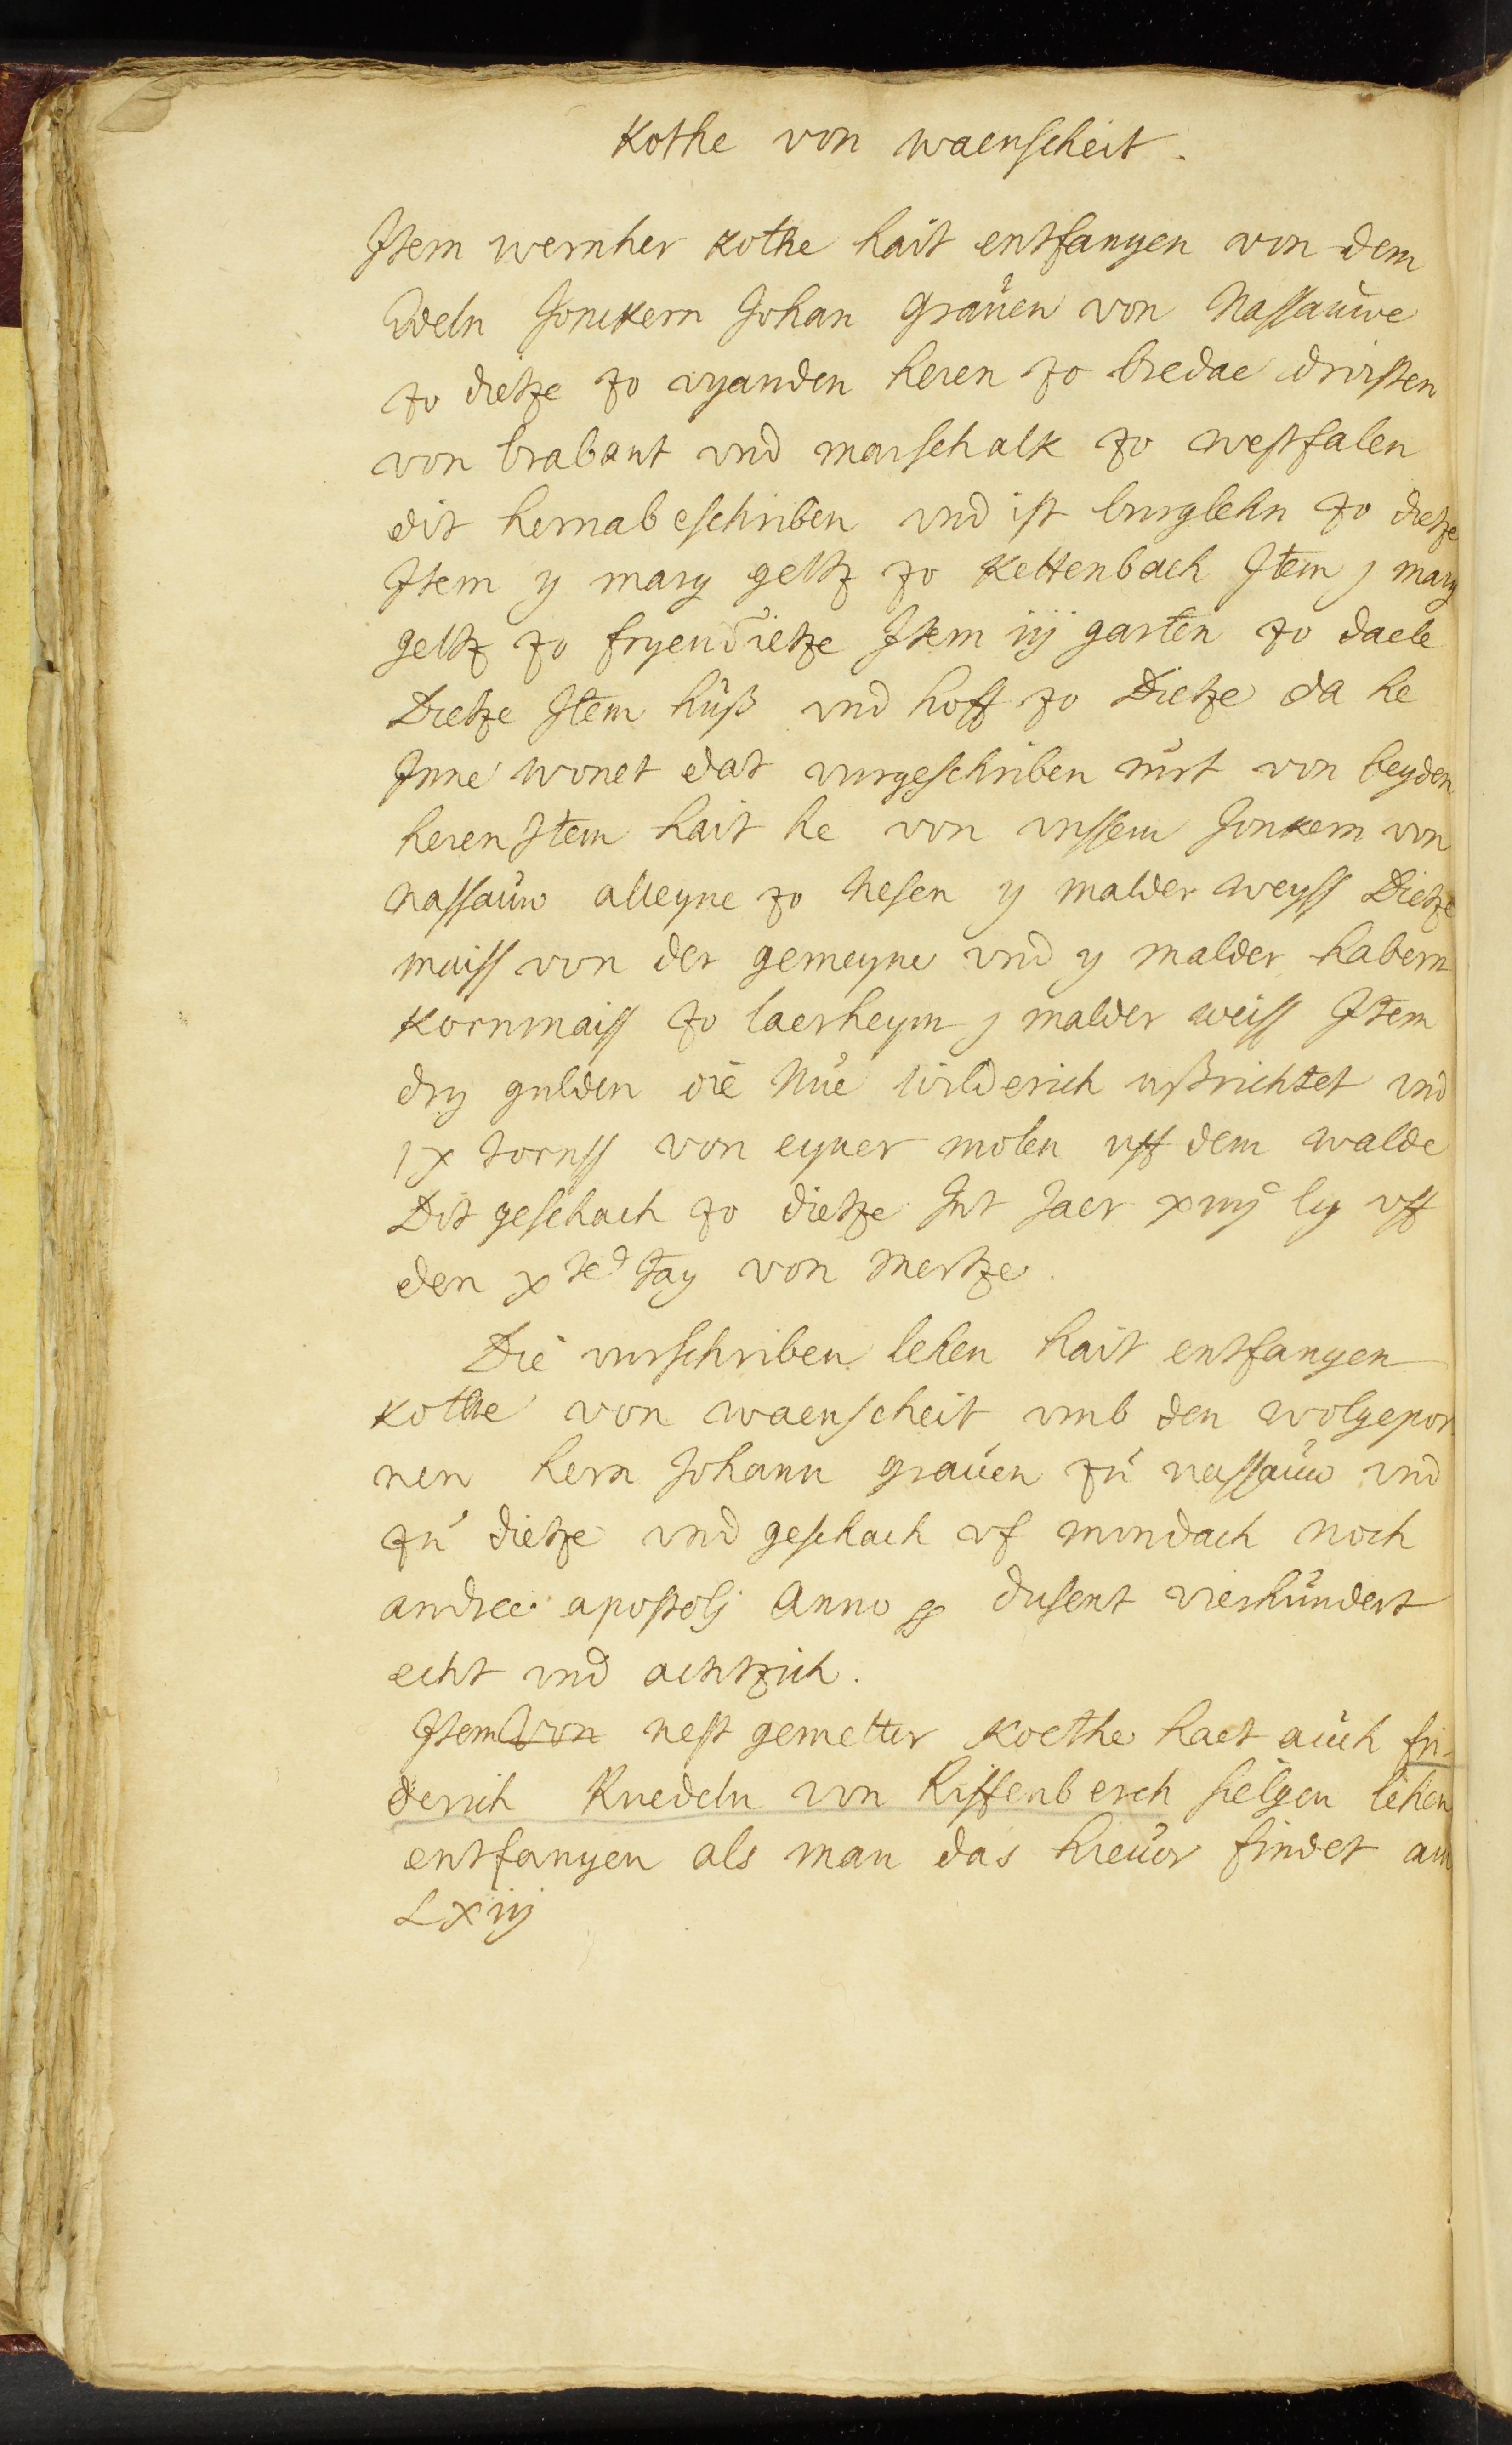 Kothe von waenscheit.
Jtem wernher kothe hait entfangen von dem
Edeln Jonckern Johan Grauen von Nassauwe
zo dietze zo vyanden heren zo bredae droisten
von brabant vnd marschalk zo westfalen
dit hernabeschriben vnd ist burglehn zo dietze
Jtem ij marg geltz zo Kettenbach Jtem j marg
geltz zo fryendietze Jtem iij garten zo daele
Dietze Jtem huß vnd hoff zo Dietze da he
Jnne wonet dat vurgeschriben rurt von beyden
heren Jtem hait he von vnssem Jonkern von
Nassauw alleyne zo hesen ij malder weyss Dietze
maiss von der gemeyne vnd ij malder habern
kornmaiss zo laerheym j malder weiss Jtem
dry gulden die Nue wilderich ußrichtet vnd
ix tornss von eyner molen vff dem walde
Dit geschach zo dietze Jnt Jaer xiiijᶜ lij vff
den xten tag von Mertze.
Die vurschriben lehen hait entfangen
kothe von waenscheit vmb den wolgepor
nen hern Johann grauen zu nassauw vnd
zu dietze vnd geschach vf mondach noch
andree apostolj Anno dusent vierhundert
echt vnd achtzich.
Jtem von nest gemelter Koethe haet auch fri-
derich Knedeln von Riffenberch sielgen lehen
entfangen als man das hieuor findet am
LXiij